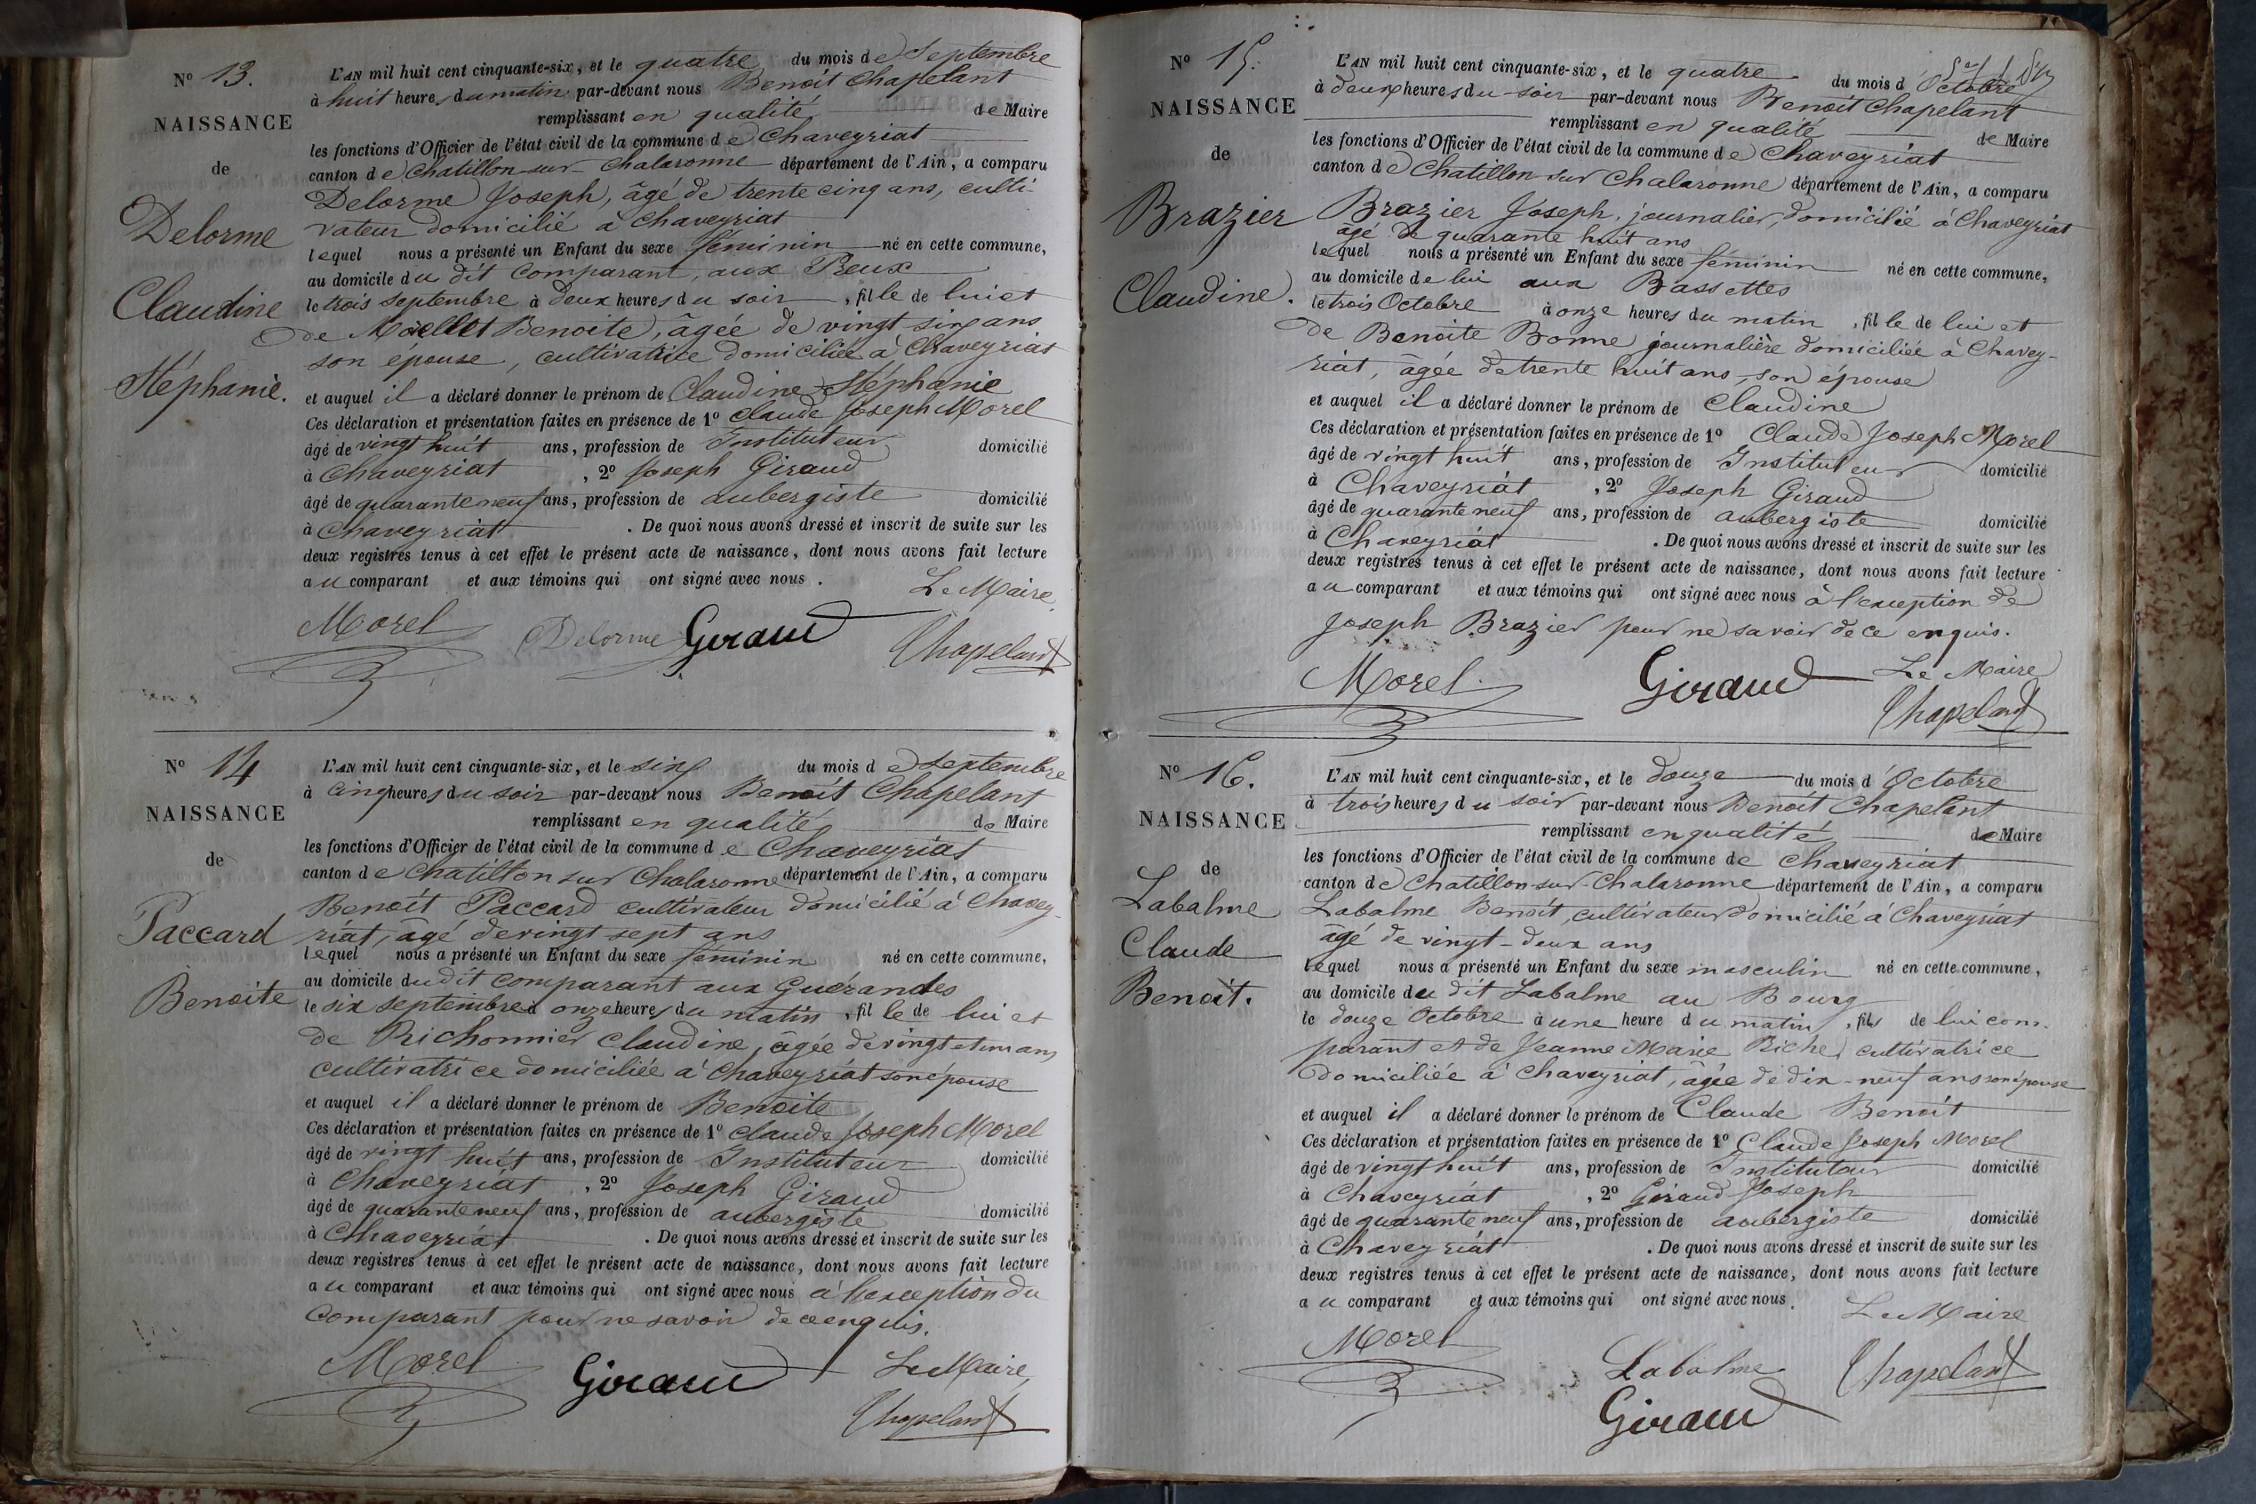 N° 13.
NAISSANCE
de
Delorme
Claudine
Stéphanie.
L'AN mil huit cent cinquante-six, et le quatre du mois de Septembre
à huit heures du matin par-devant nous Benoit Chapelant
remplissant en qualité de Maire
les fonctions d'Officier de l'état civil de la commune de Chaveyriat
canton de Chatillon-sur-Chalaronne département de l'Ain, a comparu
Delorme Joseph, âgé de trente cinq ans, culti-
vateur domicilié à Chaveyriat
lequel nous a présenté un Enfant du sexe féminin né en cette commune,
au domicile du dit Comparant, aux Preux
le trois septembre à deux heures du soir, fille de lui et
de Moellet Benoite, âgée de vingt six ans
son épouse, cultivatrice domiciliée à Chaveyriat
et auquel il a déclaré donner le prénom de Claudine Stéphanie
Ces déclaration et présentation faites en présence de 1° Claude Joseph Morel
âgé de vingt huit ans, profession de Instituteur domicilié
à Chaveyriat, 2° Joseph Giraud
âgé de quarante neuf ans, profession de aubergiste domicilié
à Chaveyriat. De quoi nous avons dressé et inscrit de suite sur les
deux registres tenus à cet effet le présent acte de naissance, dont nous avons fait lecture
au comparant et aux témoins qui ont signé avec nous.
Le Maire,
Morel Delorme Giraud Chapelant
N° 14
NAISSANCE
de
Paccard
Benoite
L'AN mil huit cent cinquante-six, et le six du mois de septembre
à cinq heures du soir par-devant nous Benoit Chapelant
remplissant en qualité de Maire
les fonctions d'Officier de l'état civil de la commune de Chaveyriat
canton de Chatillon sur Chalaronne département de l'Ain, a comparu
Benoit Paccard cultivateur domicilié à Chavey-
riat, âgé de vingt sept ans
lequel nous a présenté un Enfant du sexe féminin né en cette commune,
au domicile du dit comparant aux Guérandes
le six septembre à onze heures du matin, fille de lui et
de Richonnier Claudine, âgée de vingt et un ans
cultivatrice domiciliée à Chaveyriat son épouse
et auquel il a déclaré donner le prénom de Benoite
Ces déclaration et présentation faites en présence de 1° Claude Joseph Morel
âgé de vingt huit ans, profession de Instituteur domicilié
à Chaveyriat, 2° Joseph Giraud
âgé de quarante neuf ans, profession de aubergiste domicilié
à Chaveyriat. De quoi nous avons dressé et inscrit de suite sur les
deux registres tenus à cet effet le présent acte de naissance, dont nous avons fait lecture
au comparant et aux témoins qui ont signé avec nous à l'exception du
comparant pour ne savoir de ce enquis.
Morel Giraud Le Maire,
Chapelant
N° 15.
NAISSANCE
de
Brazier
Claudine.
L'AN mil huit cent cinquante-six, et le quatre du mois d'Octobre
à deux heures du soir par-devant nous Benoit Chapelant
remplissant en qualité de Maire
les fonctions d'Officier de l'état civil de la commune de Chaveyriat
canton de Chatillon sur Chalaronne département de l'Ain, a comparu
Brazier Joseph, journalier, domicilié à Chaveyriat
âgé de quarante huit ans
lequel nous a présenté un Enfant du sexe féminin né en cette commune,
au domicile de lui aux Bassettes
le trois Octobre à onze heures du matin, fille de lui et
de Benoite Bonne journalière domiciliée à Chavey-
riat, âgée de trente huit ans, son épouse
et auquel il a déclaré donner le prénom de Claudine
Ces déclaration et présentation faites en présence de 1° Claude Joseph Morel
âgé de vingt huit ans, profession de Instituteur domicilié
à Chaveyriat, 2° Joseph Giraud
âgé de quarante neuf ans, profession de aubergiste domicilié
à Chaveyriat. De quoi nous avons dressé et inscrit de suite sur les
deux registres tenus à cet effet le présent acte de naissance, dont nous avons fait lecture
au comparant et aux témoins qui ont signé avec nous à l'exception de
Joseph Brazier pour ne savoir de ce enquis.
Morel Giraud Le Maire
Chapelant
N° 16.
NAISSANCE
de
Labalme
Claude
Benoit.
L'AN mil huit cent cinquante-six, et le douze du mois d'Octobre
à trois heures du soir par-devant nous Benoit Chapelant
remplissant en qualité de Maire
les fonctions d'Officier de l'état civil de la commune de Chaveyriat
canton de Chatillon-sur-Chalaronne département de l'Ain, a comparu
Labalme Benoit, cultivateur domicilié à Chaveyriat
âgé de vingt-deux ans
lequel nous a présenté un Enfant du sexe masculin né en cette commune,
au domicile du dit Labalme au Bourg
le douze Octobre à une heure du matin, fils de lui com-
parant et de Jeanne Marie Riche, cultivatrice
domiciliée à Chaveyriat, âgée de dix-neuf ans son épouse
et auquel il a déclaré donner le prénom de Claude Benoit
Ces déclaration et présentation faites en présence de 1° Claude Joseph Morel
âgé de vingt huit ans, profession de Instituteur domicilié
à Chaveyriat, 2° Giraud Joseph
âgé de quarante neuf ans, profession de aubergiste domicilié
à Chaveyriat. De quoi nous avons dressé et inscrit de suite sur les
deux registres tenus à cet effet le présent acte de naissance, dont nous avons fait lecture
au comparant et aux témoins qui ont signé avec nous.
Le Maire
Morel Labalme Chapelant
Giraud